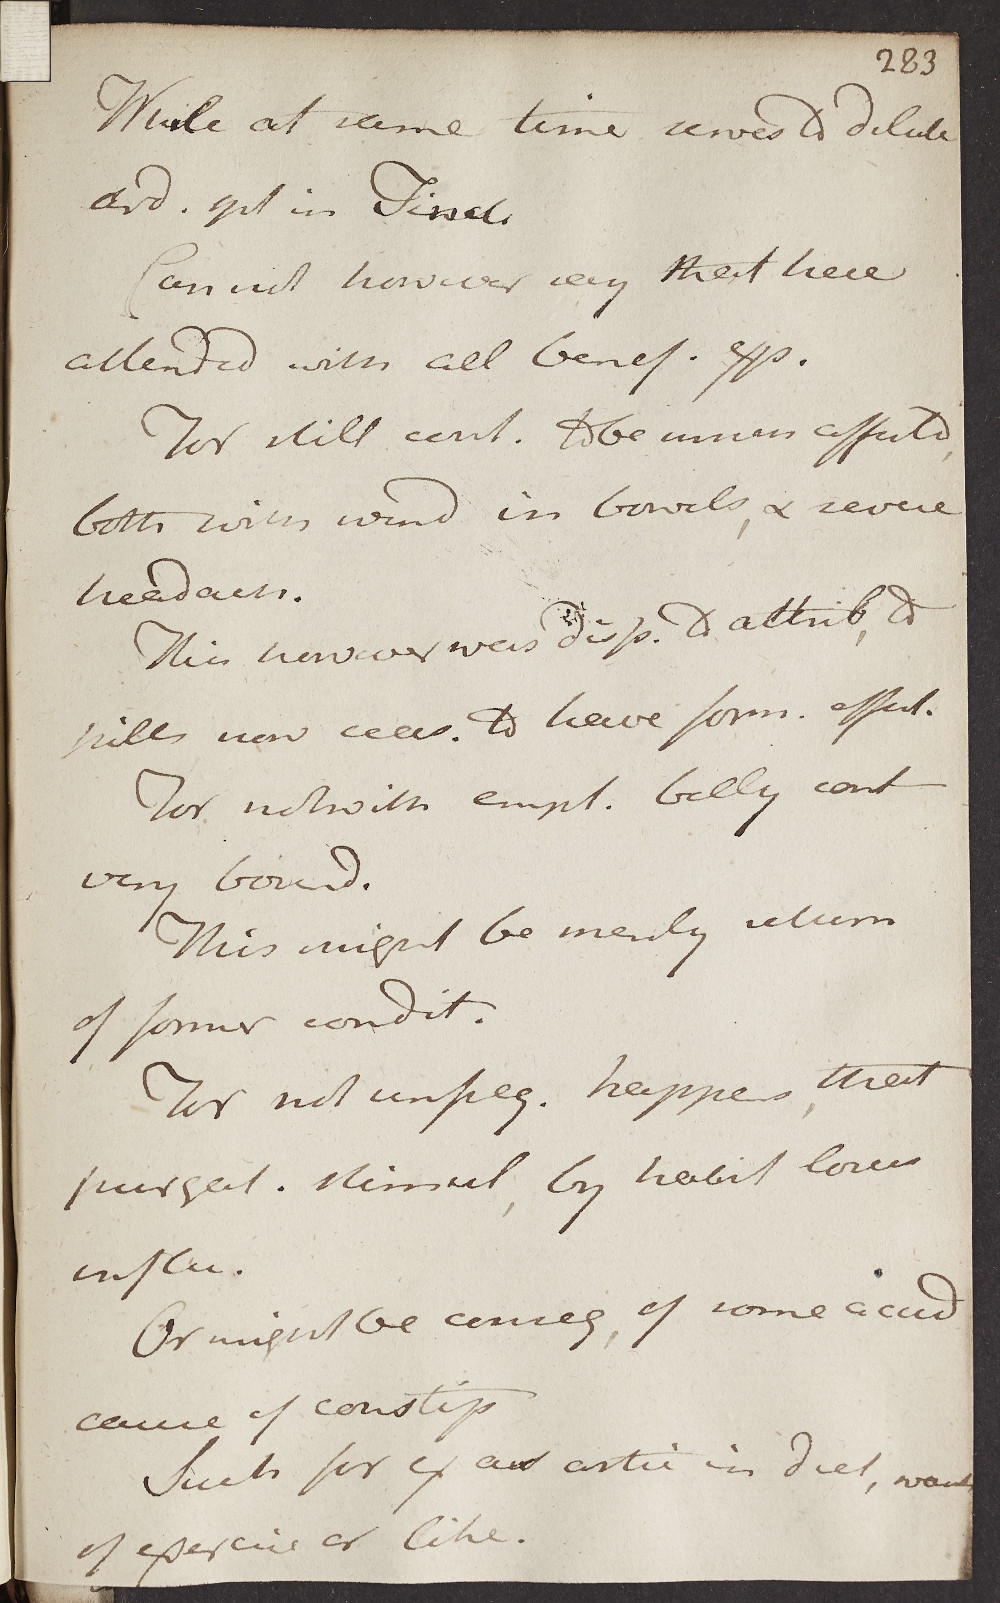 283
While at same time serves to dilute
ard. spt in Tinct.
Cannot however say that here
attended with all benef. exp.
For still cont. to be much affected,
both with wind in bowels, & severe
headach.
This however was disp. to attrib, to
pills now ceas. to have form. effect.
For notwith empl. belly cont
very bound.
This might be merely return
of former condit.
For not unfreq. happens, that
purgat. stimul, by habit loses
influ.
Or might be conseq, of some accid
cause of constip
Such for ex as astric in diet, want
of exercise or like.